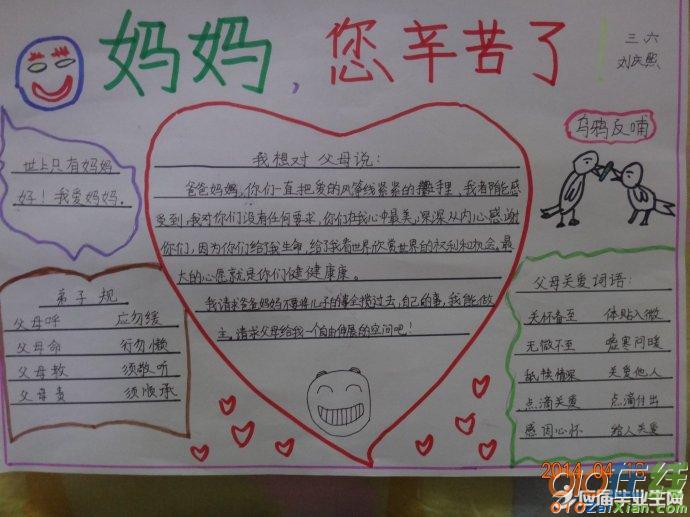 妈妈，您辛苦了！
三六
刘庆熙
世上只有妈妈
好！我爱妈妈。
我想对父母说：
爸爸妈妈，你们一直把爱的风筝线紧紧的攥手里，我都能感
受到，我对你们没有任何要求，你们在我心中最美，深深从内心感谢
你们，因为你们给了我生命，给了我看世界欣赏世界的权利和机会。最
大的心愿就是你们健健康康。
我请求爸爸妈妈不要将儿子的事全揽过去，自己的事，我能做
主。请求父母给我一个自由伸展的空间吧！
乌鸦反哺
弟子规
父母呼 应勿缓
父母命 行勿懒
父母教 须敬听
父母责 须顺承
父母关爱词语：
关怀备至 体贴入微
无微不至 嘘寒问暖
舐犊情深 关爱他人
点滴关爱 点滴付出
感因心怀 给人关爱
2014 04 16
QQ在线
应届毕业生网
010ZaiXian.com